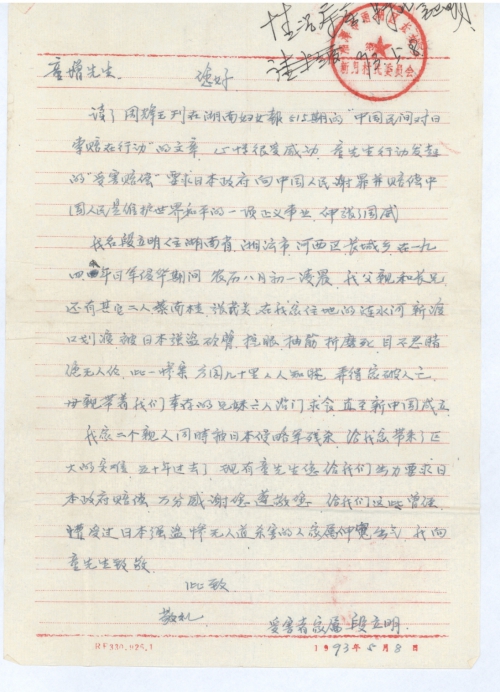 情况属实，
9[3].5.8
新月村村民委员会
童增先生： 您好
读了周[辉]王列在湖南妇女报615期的“中国民间对日
索赔在行动”的文章，心情很受感动，童先生行动发起
的“受害赔偿”要求日本政府向中国人民谢罪并赔偿中
国人民是维护世界和平的一项正义事业，伸张了国威
我名段立明住湖南省，湘潭市，河西区长城乡，在一九
四四年日军侵华期间 农历八月初一凌晨，我父亲和长兄
还有其它二人 在我家住地的涟水河新渡
口划渡，被日本强盗砍臂，挖眼，抽筋，折磨死，目不忍睹
惨无人伦，此一惨案，方圆九十里人人知晓，弄得家破人亡，
母亲带着我们幸存的兄妹六人沿门求食，直至新中国成立
我家二个亲人同时被日本侵略军残杀，给我家带来了巨
大的灾难，五十年过去了，现有童先生您给我们出力要求日
本政府赔偿，万分感谢您，尊敬您，给我们这些曾经
遭受过日本强盗惨无人道杀害的人家属伸冤出气，我向
童先生致敬
此致
敬礼
受害者家属 段立明
1993年5月8日